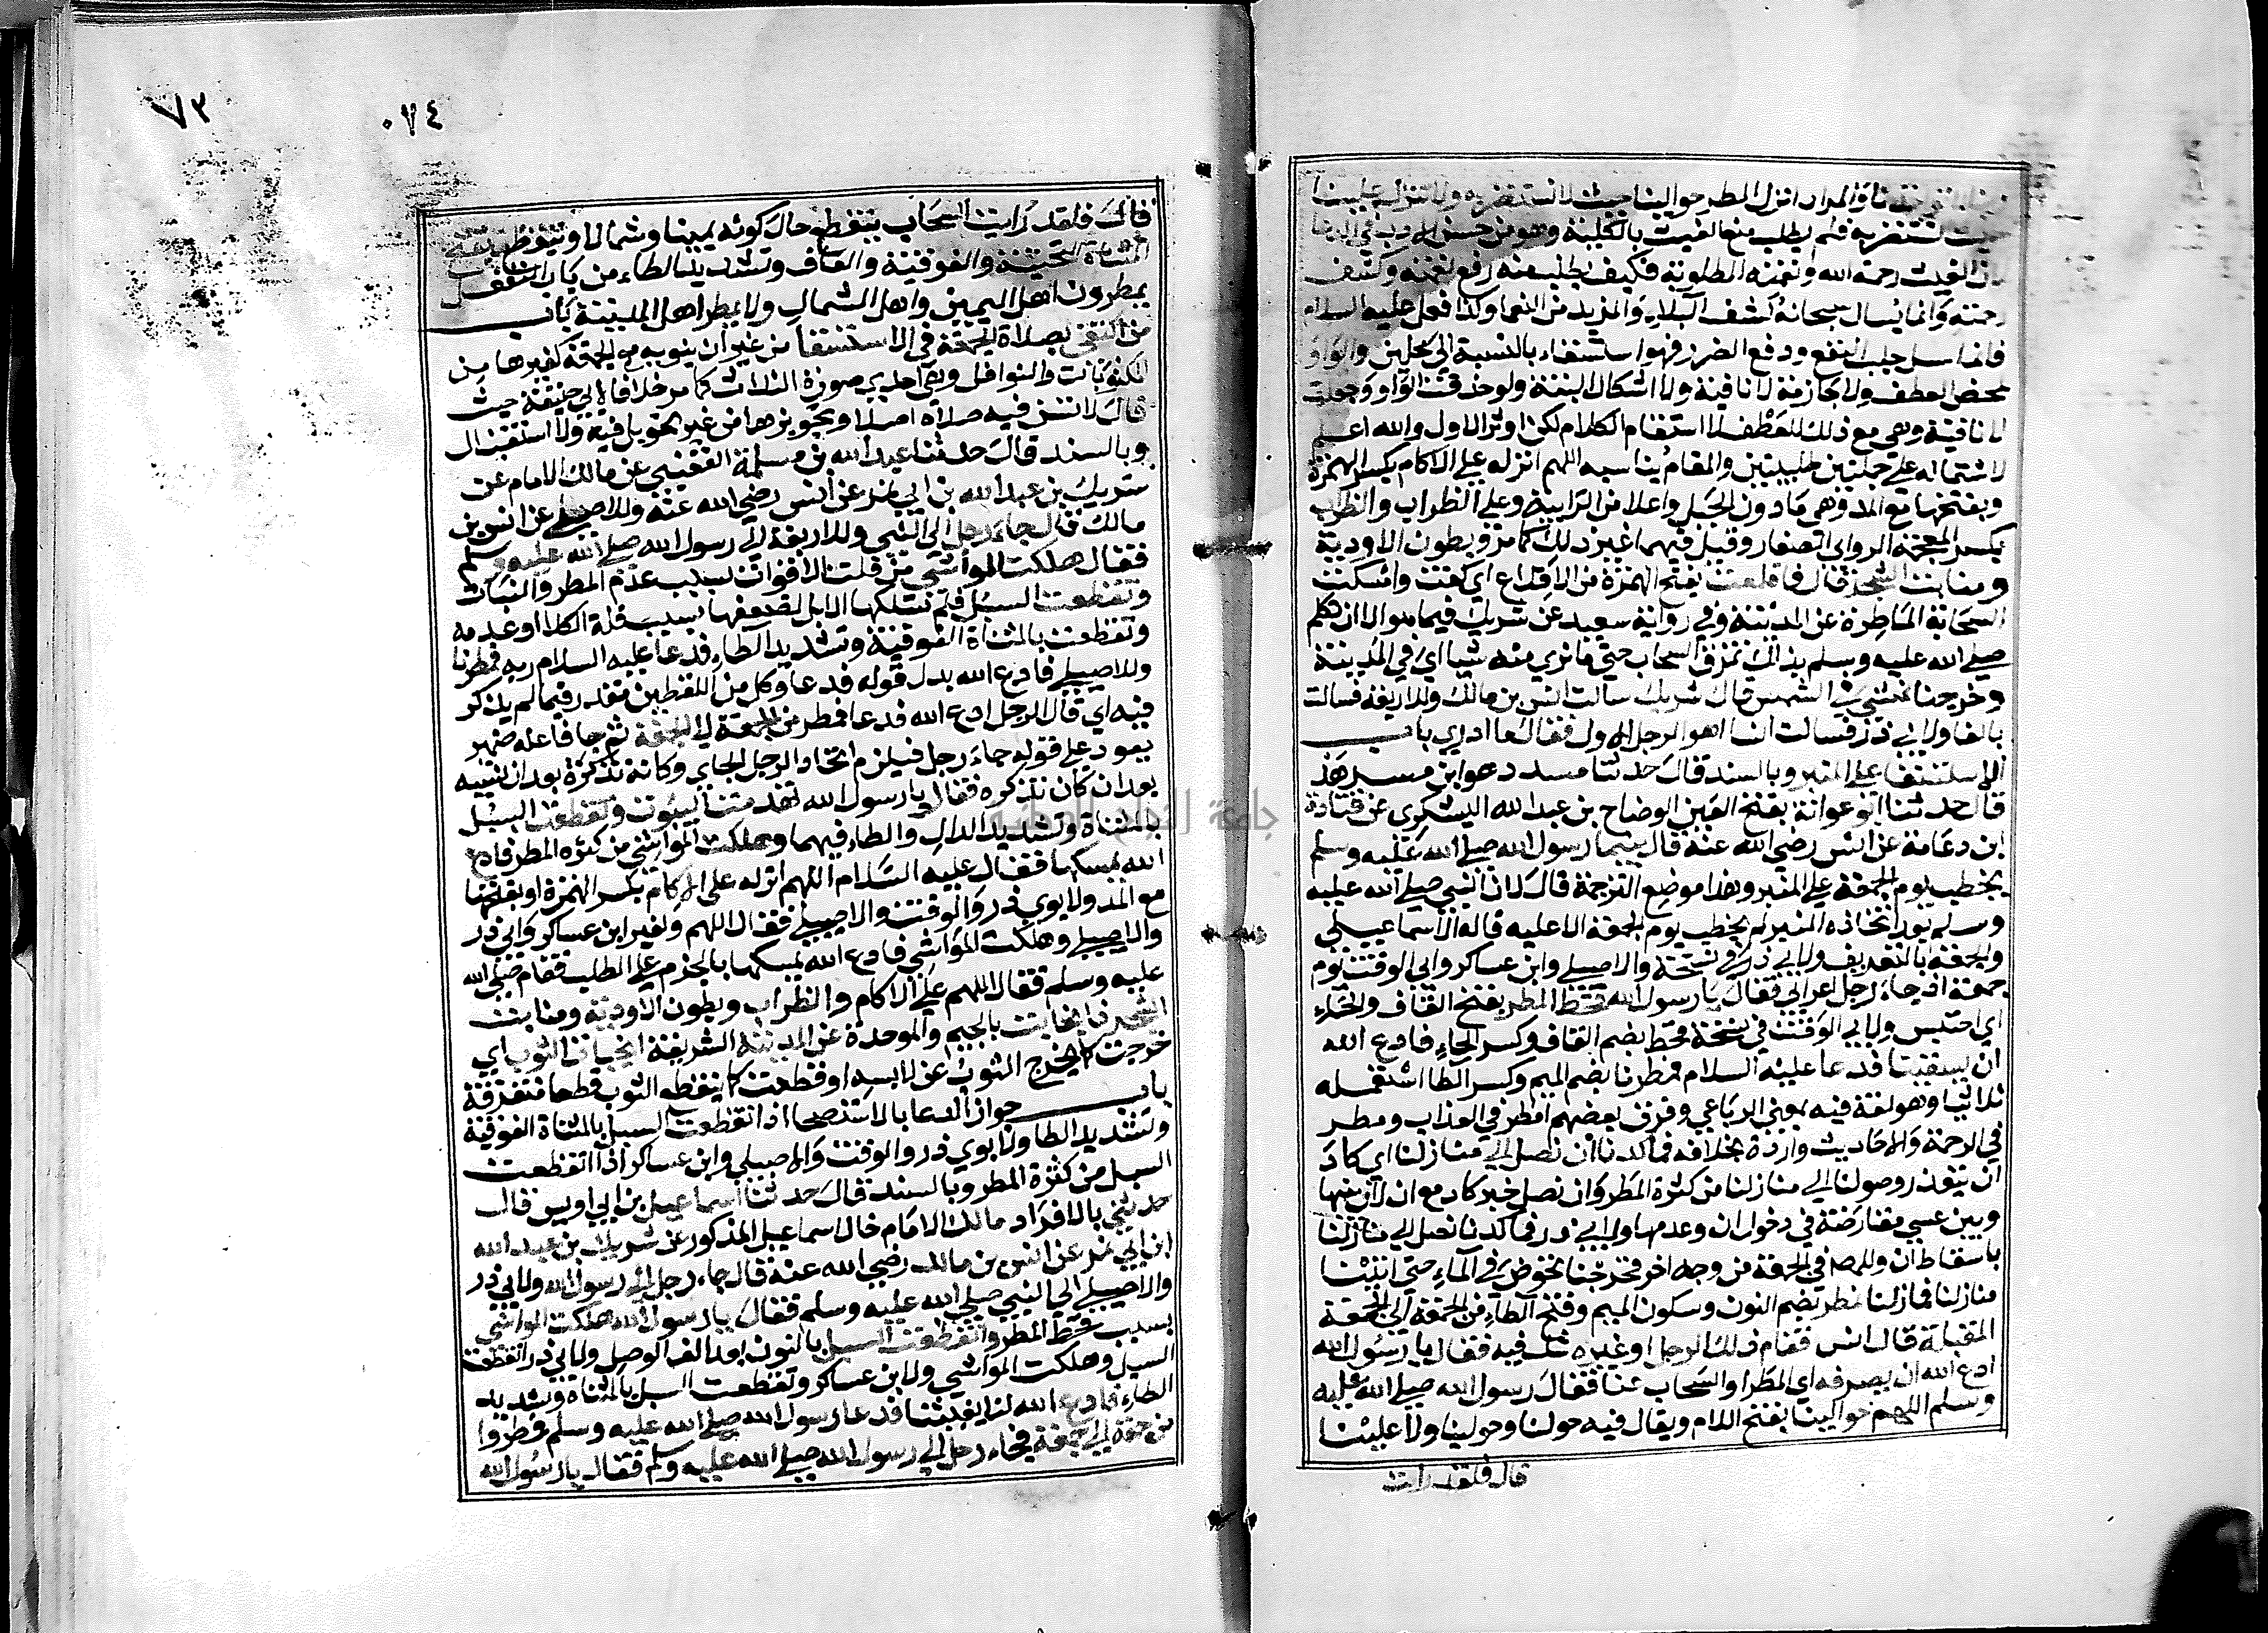 والمراد انزل المطر حوالينا حيث لا نستضر به ولا تنزل علينا
حيث نستضر به فلم يطلب منع الغيث بالكلية وهو من حسن الادب في الدعا
لان الغيث رحمة الله ونعمته المطلوبة فكيف يطلب منه رفع نعمته وكشف
رحمته وانما يسال سبحانه كشف البلاء والمزيد من النعما وكذا فعل عليه السلام
فانما سل جلب النفع ودفع الضرر فهو استسقاء بالنسبة الي محلين والواو
لمحض العطف ولا جازمة لا نافية ولا اشكال البتة ولو حذفت الواو وجعلت
لا نافية وهي مع ذلك للعطف لاستقام الكلام لكن اوثر الاول والله اعلم
لاشتماله علي جملتين طلبيتين والمقام يناسبه اللهم انزله علي الاكام بكسر الهمزة
وبفتحها مع المد وهي مادون الجبل واعلا من الرابية وعلي الظراب والظراب
بكسر المعجمة الروابي الصغار وقيل فيهما غير ذلك كما مر وبطون الاودية
ومنابت الشجر قال فاقلعت بفتح الهمزة من الاقلاع اي كفت وامسكت
السحابة الماطرة عن المدينة وفي رواية سعيد عن شريك فيما هو الا ان تكلم
صلي الله عليه وسلم بذلك تمزق السحاب حتي ما نري منه شيا اي في المدينة
وخرجنا نمشي في الشمس قال شريك سالت انس بن مالك وللاربعة فسالت
بالفا ولابي ذر فسالت انسا اهو الرجل الاول فقال ما ادري باب
الاستسقا علي المنبر وبالسند قال حدثنا مسدد هو ابن مسرهد
قال حدثنا ابو عوانة بفتح العين الوضاح بن عبد الله اليشكري عن قتادة
ابن دعامة عن انس رضي الله عنه قال بينما رسول الله صلي الله عليه وسلم
يخطب يوم الجمعة علي المنبر وهذا موضع الترجمة قال لان النبي صلي الله عليه
وسلم بعد اتخاذه المنبر لم يخطب يوم الجمعة الا عليه قاله الاسماعيلي
والجمعة بالتعريف ولابي ذر في نسخة والاصيلي وابن عساكر وابي الوقت يوم
جمعة اذ جاء رجل اعرابي فقال يا رسول الله قحط المطر بفتح القاف والحاء
اي احتبس ولابي الوقت في نسخة قحط بضم القاف وكسر الحاء فادع الله
ان يسقينا فدعا عليه السلام فمطرنا بضم الميم وكسر الطا استعمله
ثلاثيا وهو لغة فيه بمعني الرباعي وفرق بعضهم امطر في العذاب ومطر
في الرحمة والاحاديث واردة بخلافه فما كدنا ان نصل الي منازلنا اي كاد
ان يتعذر وصولنا الي منازلنا من كثرة المطر وان نصل خبر كاد مع ان لان بينها
وبين عسي مقارضة في دخول ان وعدمها ولابي ذر فما كدنا نصل الي منازلنا
باسقاط ان وللمصنف في الجمعة من وجه اخر فخرجنا نخوض في الماء حتي اتينا
منازلنا فمازلنا نمطر بضم النون وسكون الميم وفتح الطاء من الجمعة الي الجمعة
المقبلة قال انس فقام ذلك الرجل او غيره شك فيه فقال يا رسول الله
ادع الله ان يصرفه اي المطر او السحاب عنا فقال رسول الله صلي الله عليه
وسلم اللهم حوالينا بفتح اللام ويقال فيه حولنا وحولينا ولا علينا
قال فلقد رايت
٧٣
٠٧٤
قال فلقد رايت السحاب يتقطع حال كونه يمينا وشمالا ويتقطع بفتح
المثناة التحتية والفوقية والقاف وتشديد الطاء من باب التفعل
يمطرون اهل اليمين واهل الشمال ولا يمطر اهل المدينة باب
من اكتفي بصلاة الجمعة في الاستسقا من غير ان ينويه مع الجمعة كغيرها من
المكتوبات والنوافل وهي احدي صورة الثلاث كما مر خلافا لابي حنيفة حيث
قال لا تسن فيه صلاة اصلا وبجوازها من غير تحويل فيه ولا استقبال
وبالسند قال حدثنا عبد الله بن مسلمة القعنبي عن مالك الامام عن
شريك بن عبد الله بن ابي نمر عن انس رضي الله عنه وللاصيلي عن انس بن
مالك قال جاء رجل الي النبي وللاربعة الي رسول الله صلي الله عليه وسلم
فقال هلكت المواشي من قلت الاقوات بسبب عدم المطر والنبات
وتقطعت السبل فلم تسلكها الابل لضعفها بسبب قلة الكلا او عدمه
وتقطعت بالمثناة الفوقية وتشديد الطاء فدعا عليه السلام ربه فمطرنا
وللاصيلي فادع الله بدل قوله فدعا وكل من اللفظين مقدر فيما لم يذكر
فيه اي قال الرجل ادع الله فدعا فمطر من الجمعة الي الجمعة ثم جا فاعله ضمير
يعود علي قوله جاء رجل فيلزم اتحاد الرجل الجاي وكانه تذكره بعد ان نسيه
بعد ان كان تذكره فقال يا رسول الله تهدمت البيوت وتقطعت السبل
بالمثناة وتشديد الدال والطاء فيهما وهلكت المواشي من كثرة المطر فادع
الله يمسكها فقال عليه السلام اللهم انزله علي الاكام بكسر الهمزة او بفتحها
مع المد ولابوي ذر والوقت والاصيلي فقال اللهم ولغير ابن عساكر وابي ذر
والاصيلي وهلكت المواشي فادع الله يمسكها بالجزم علي الطلب فقام صلي الله
عليه وسلم فقال اللهم علي الاكام والظراب وبطون الاودية ومنابت
الشجر فانجابت بالجيم والموحدة عن المدينة الشريفة انجياب الثوب اي
خرجت كما يخرج الثوب عن لابسه او قطعت كما يتقطع الثوب قطعا متفرقة
باب جواز الدعا بالاستصحا اذا تقطعت السبل بالمثناة الفوقية
وتشديد الطا ولابوي ذر والوقت والاصيلي وابن عساكر اذا انقطعت
السبل من كثرة المطر وبالسند قال حدثنا اسماعيل بن ابي اويس قال
حدثني بالافراد مالك الامام خال اسماعيل المذكور عن شريك بن عبد الله
ابن ابي نمر عن انس بن مالك رضي الله عنه قال جاء رجل الي رسول الله ولابي ذر
والاصيلي الي النبي صلي الله عليه وسلم فقال يا رسول الله هلكت المواشي
بسبب قحط المطر وانقطعت السبل بالنون بعد الف الوصل ولابي ذر انقطعت
السبل وهلكت المواشي ولابن عساكر وتقطعت السبل بالمثناة وتشديد
الطاء فادع الله لنا يغيثنا فدعا رسول الله صلي الله عليه وسلم فمطروا
من جمعة الي جمعة فجاء رجل الي رسول الله صلي الله عليه وسلم فقال يا رسول الله
جامعة النجاح الوطنية